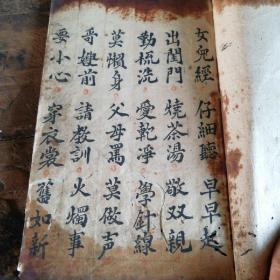 女兒經 仔細聽 早早起
出閨門 燒茶湯 敬双親
勤梳洗 愛乾淨 學針線
莫懶身 父母罵 莫做声
哥嫂前 請教訓 火燭事
要小心 穿衣裳 旧如新